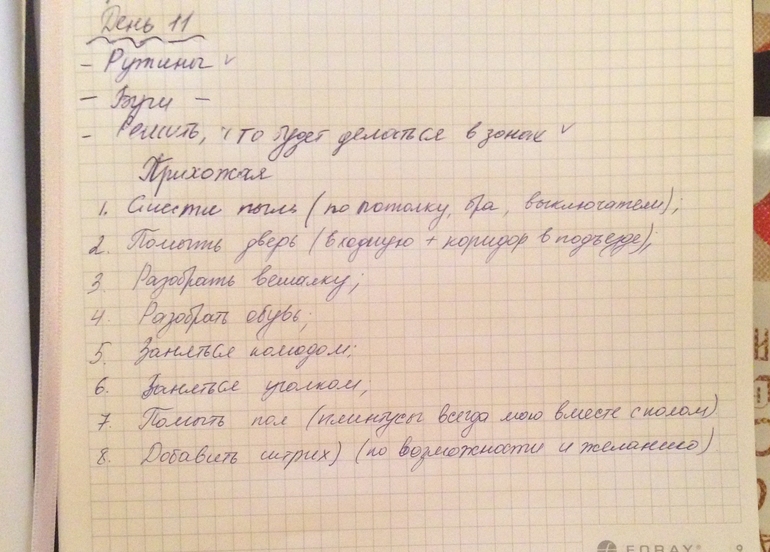 День 11
- Рутины ✓
- Буги -
- Решить, что будет делаться в зонах ✓
Прихожая
1. Смести пыль (по потолку, бра, выключатели);
2. Помыть дверь (входную + коридор в подъезде);
3. Разобрать вешалку;
4. Разобрать обувь;
5. Заняться комодом;
6. Заняться уголком;
7. Помыть пол (плинтусы всегда мою вместе с полом)
8. Добавить штрих) (по возможности и желанию)
FORAY® 9